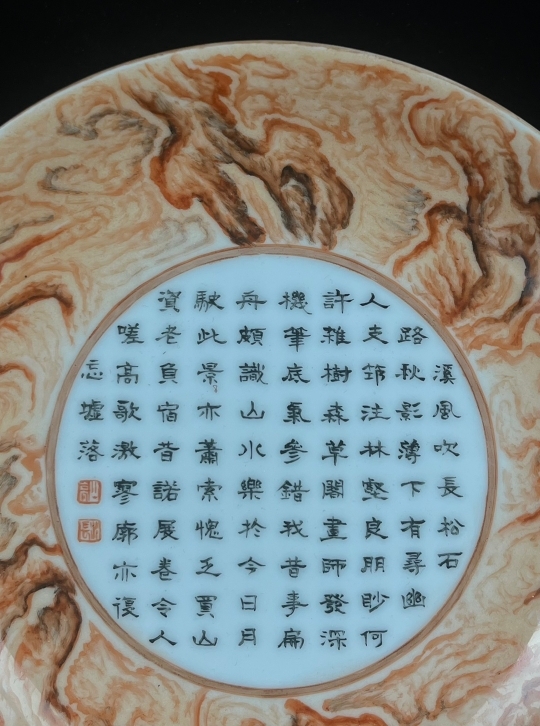 溪風吹長松石
路秋影薄下有尋幽
人支筇注林壑良朋眇何
許雜樹森草閣畫師發深
機筆底參錯我昔事扁
舟頗識山水樂於今日月
駛此景亦蕭索愧乏買山
資老負宿昔諾展卷令人
嗟高歌激寥廓亦復
忘墟落